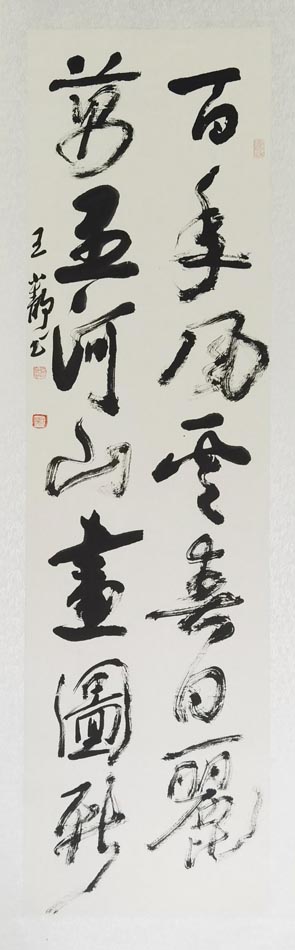 百年風雲春日麗
萬里河山畫圖新
王